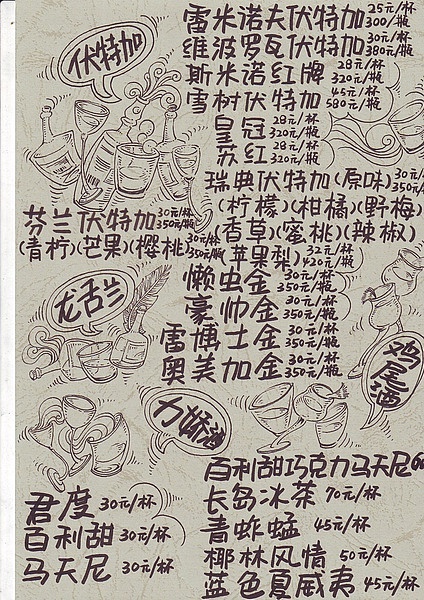 伏特加
雷米诺夫伏特加 25元/杯 300/瓶
维波罗瓦伏特加 30元/杯 380元/瓶
斯米诺红牌 28元/杯 320元/瓶
雪树伏特加 45元/杯 580元/瓶
皇冠 28元/杯 320元/瓶
苏红 28元/杯 320元/瓶
瑞典伏特加(原味) 30元/杯 350元/瓶
(柠檬)(柑橘)(野梅)
(香草)(蜜桃)(辣椒)
(苹果梨) 32元/杯 420元/瓶
芬兰伏特加 30元/杯 350元/瓶
(青柠)(芒果)(樱桃) 30元/杯 350元/瓶
龙舌兰
懒虫金 30元/杯 350元/瓶
豪帅金 30元/杯 350元/瓶
雷博士金 30元/杯 350元/瓶
奥美加金 30元/杯 350元/瓶
鸡尾酒
力娇酒
君度 30元/杯
百利甜 30元/杯
马天尼 30元/杯
百利甜巧克力马天尼
长岛冰茶 70元/杯
青蚱蜢 45元/杯
椰林风情 50元/杯
蓝色夏威夷 45元/杯